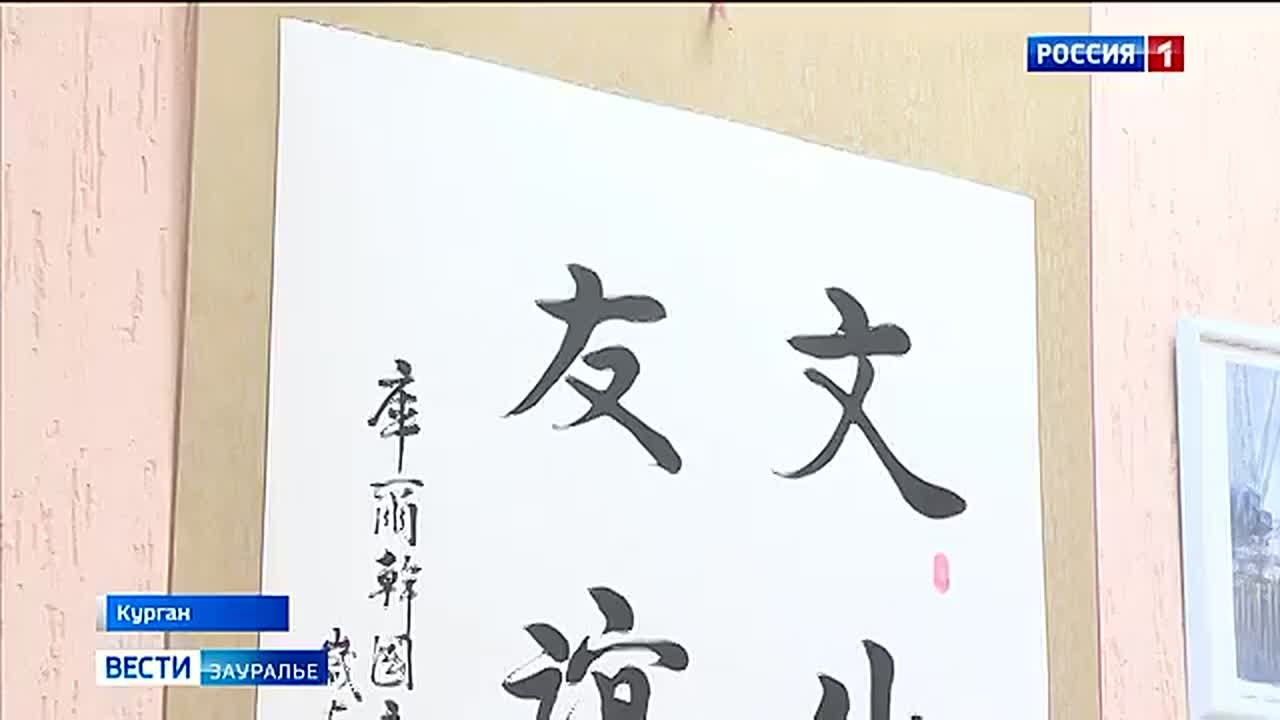 РОССИЯ 1
文
友誼
庫爾幹國
歲
Курган
ВЕСТИ ЗАУРАЛЬЕ